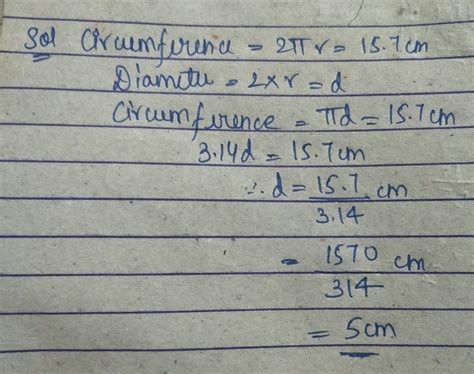 Sol Circumference = 2πr = 15.7cm
Diameter = 2×r = d
Circumference = πd = 15.7cm
3.14d = 15.7cm
∴ d = 15.7 cm
3.14
= 1570 cm
314
= 5cm